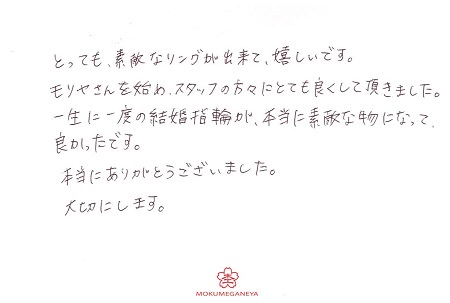 とっても、素敵なリングが出来て、嬉しいです。
モリヤさんを始め、スタッフの方々にとても良くして頂きました。
一生に一度の結婚指輪が、本当に素敵な物になって、
良かったです。
本当にありがとうございました。
大切にします。
MOKUMEGANEYA